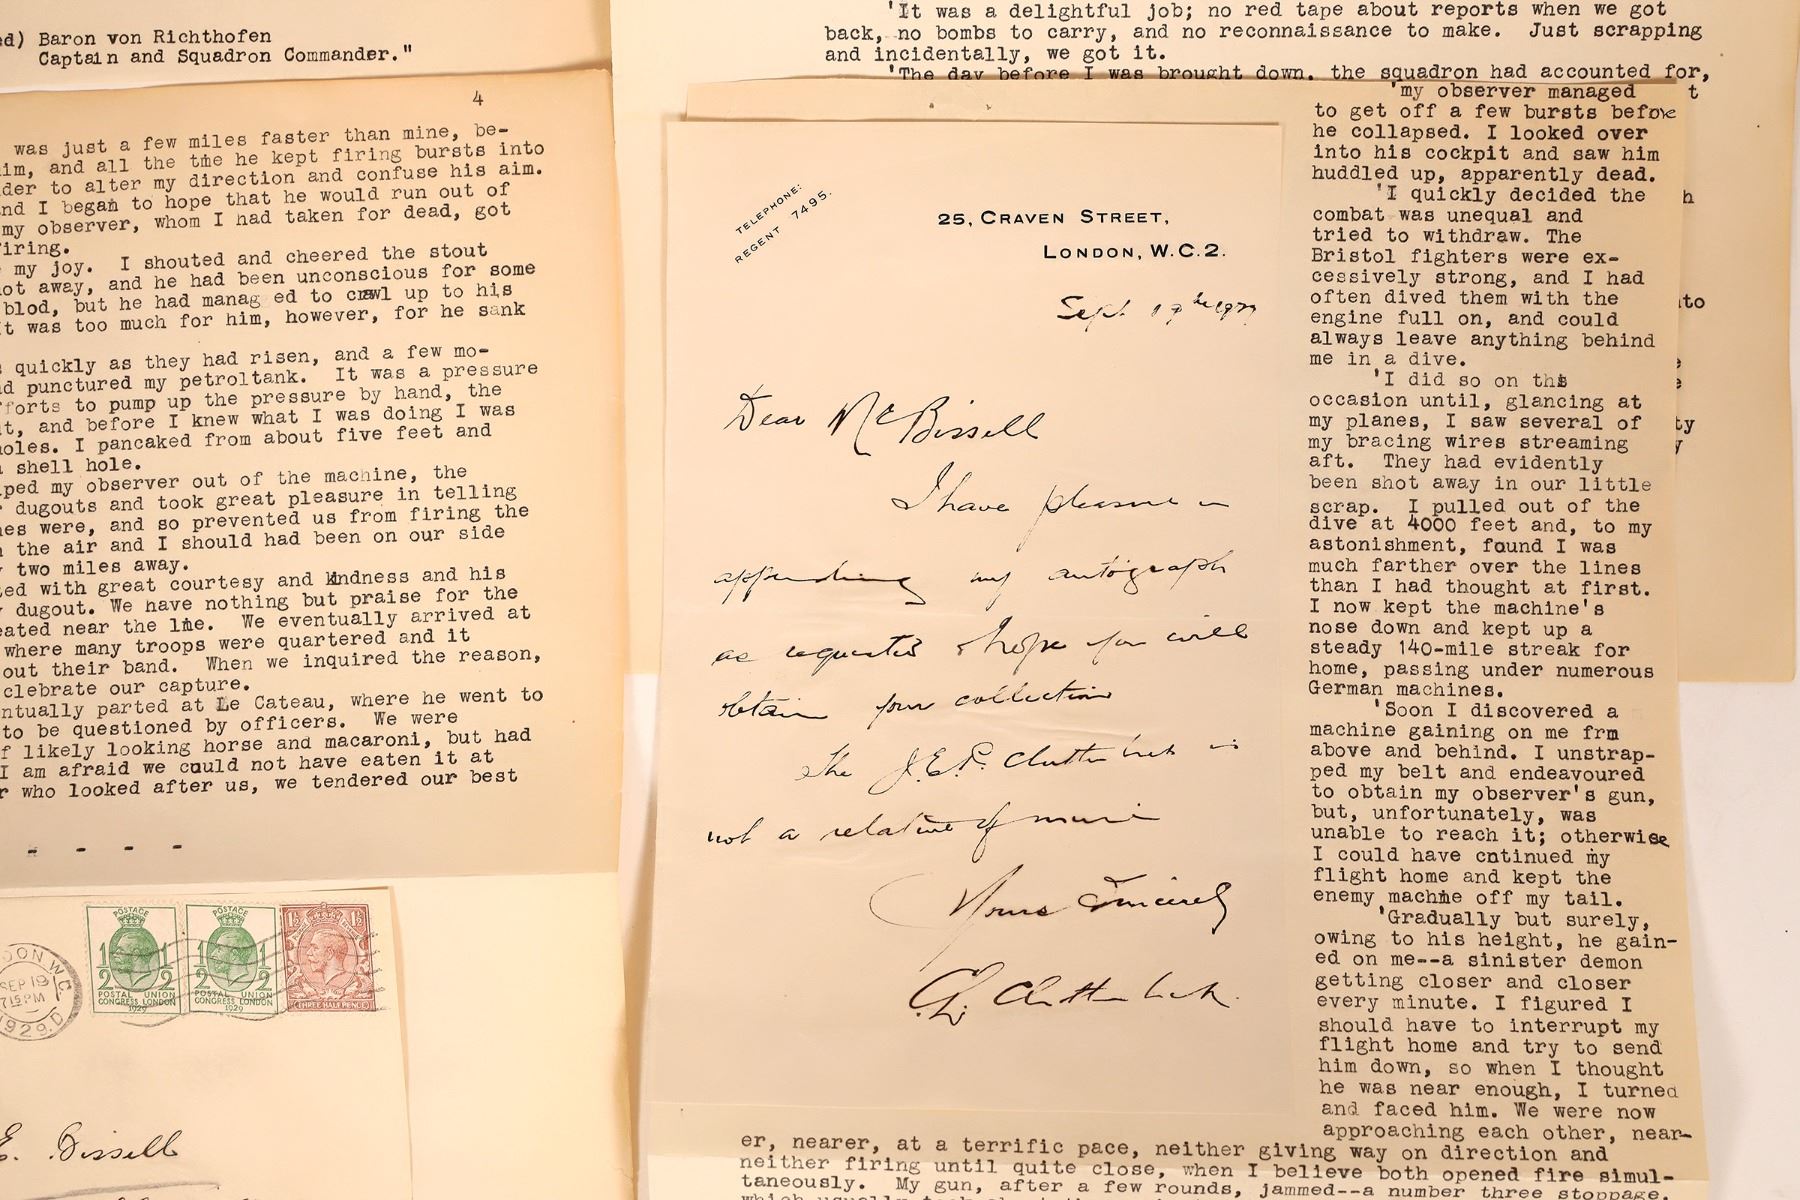 ed) Baron von Richthofen
Captain and Squadron Commander."
4
was just a few miles faster than mine, be-
im, and all the tme he kept firing bursts into
der to alter my direction and confuse his aim.
nd I began to hope that he would run out of
my observer, whom I had taken for dead, got
firing.
my joy. I shouted and cheered the stout
ot away, and he had been unconscious for some
blod, but he had manag ed to crawl up to his
t was too much for him, however, for he sank
quickly as they had risen, and a few mo-
d punctured my petroltank. It was a pressure
forts to pump up the pressure by hand, the
t, and before I knew what I was doing I was
holes. I pancaked from about five feet and
shell hole.
ped my observer out of the machine, the
dugouts and took great pleasure in telling
nes were, and so prevented us from firing the
the air and I should had been on our side
two miles away.
ted with great courtesy and kindness and his
dugout. We have nothing but praise for the
eated near the line. We eventually arrived at
where many troops were quartered and it
out their band. When we inquired the reason,
clebrate our capture.
ntually parted at Le Cateau, where he went to
to be questioned by officers. We were
f likely looking horse and macaroni, but had
I am afraid we could not have eaten it at
r who looked after us, we tendered our best
- - - -
DON W.C.
SEP 19
715 PM
1929.D
POSTAGE
1/2 1/2
POSTAL UNION
CONGRESS LONDON
1929
POSTAGE
1/2 1/2
POSTAL UNION
CONGRESS LONDON
1929
1½ 1½
THREE HALF PENCE
E. Bissell
'It was a delightful job; no red tape about reports when we got
back, no bombs to carry, and no reconnaissance to make. Just scrapping
and incidentally, we got it.
'The day before I was brought down, the squadron had accounted for,
TELEPHONE:
REGENT 7495.
25, CRAVEN STREET,
LONDON, W.C.2.
Sept 19th 1929
Dear Mr Bissell
I have pleasure in
appending my autograph
as requested & hope you will
obtain your collection
the J.E.P. Clutterbuck is
not a relative of mine
Yours Sincerely
Clutterbuck.
'my observer managed
to get off a few bursts before
he collapsed. I looked over
into his cockpit and saw him
huddled up, apparently dead.
'I quickly decided the
combat was unequal and
tried to withdraw. The
Bristol fighters were ex-
cessively strong, and I had
often dived them with the
engine full on, and could
always leave anything behind
me in a dive.
'I did so on this
occasion until, glancing at
my planes, I saw several of
my bracing wires streaming
aft. They had evidently
been shot away in our little
scrap. I pulled out of the
dive at 4000 feet and, to my
astonishment, found I was
much farther over the lines
than I had thought at first.
I now kept the machine's
nose down and kept up a
steady 140-mile streak for
home, passing under numerous
German machines.
'Soon I discovered a
machine gaining on me frm
above and behind. I unstrap-
ped my belt and endeavoured
to obtain my observer's gun,
but, unfortunately, was
unable to reach it; otherwise
I could have cntinued my
flight home and kept the
enemy machine off my tail.
'Gradually but surely,
owing to his height, he gain-
ed on me--a sinister demon
getting closer and closer
every minute. I figured I
should have to interrupt my
flight home and try to send
him down, so when I thought
he was near enough, I turned
and faced him. We were now
approaching each other, near-
er, nearer, at a terrific pace, neither giving way on direction and
neither firing until quite close, when I believe both opened fire simul-
taneously. My gun, after a few rounds, jammed--a number three stoppage,
t
h
to
e
e
ty
y